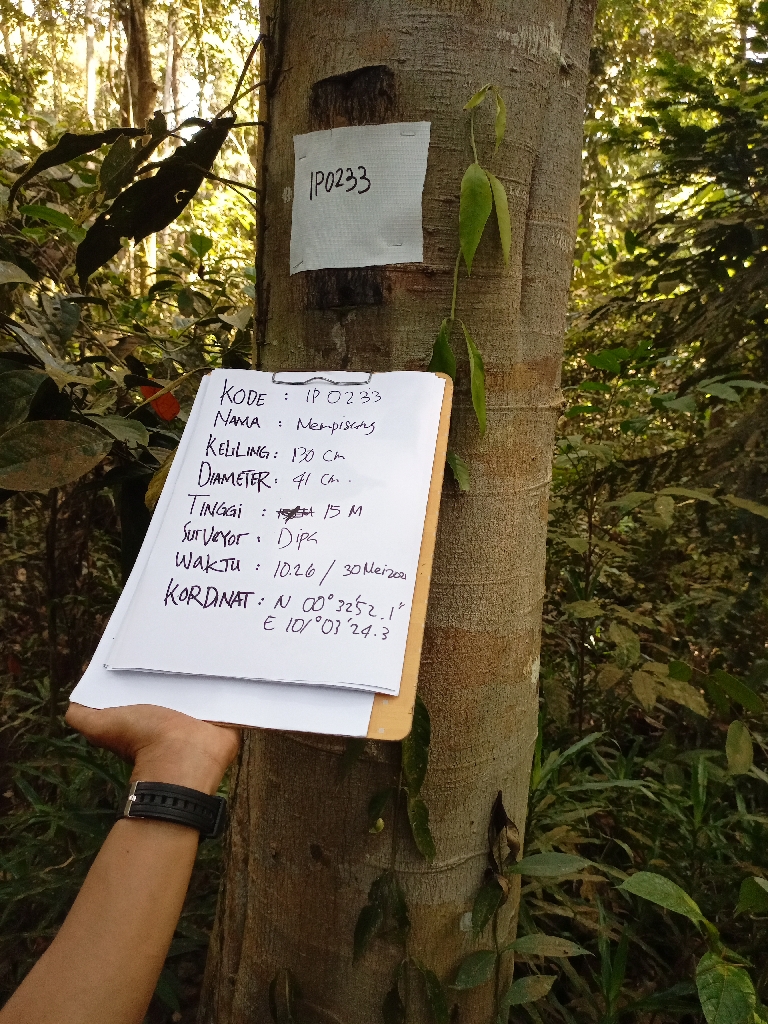 IP0233
KODE : IP 0233
NAMA : Mempisang
KELILING : 130 cm
DIAMETER : 41 cm.
TINGGI : 15 M
SURVEYOR : Dipa
WAKTU : 10.26 / 30 Mei 2021
KORDINAT : N 00° 32' 52.1"
E 101° 03' 24.3